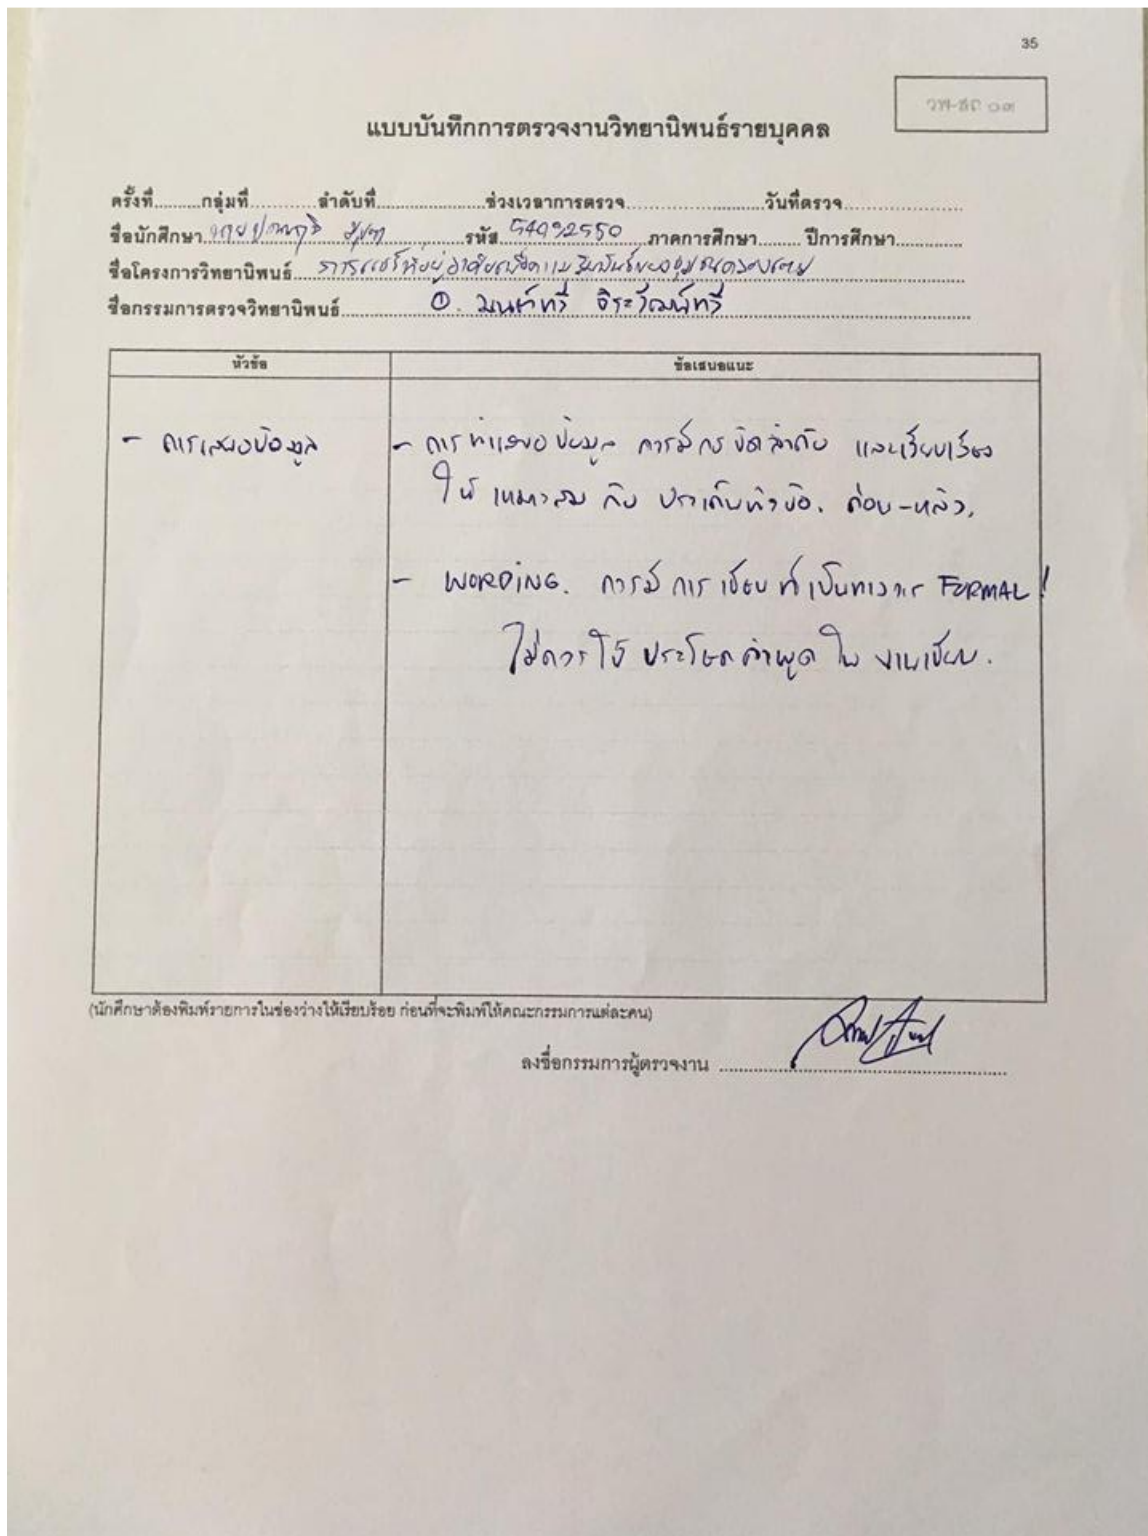 35
วพ-สถ ๐๓
แบบบันทึกการตรวจงานวิทยานิพนธ์รายบุคคล
ครั้งที่.........กลุ่มที่...........ลำดับที่..................ช่วงเวลาการตรวจ.......................วันที่ตรวจ....................
ชื่อนักศึกษา นาย รหัส 54092550 ภาคการศึกษา........ ปีการศึกษา............
ชื่อโครงการวิทยานิพนธ์
ชื่อกรรมการตรวจวิทยานิพนธ์ อ. มนต์ทวี จิระวัฒน์ทวี
หัวข้อ ข้อเสนอแนะ
- การเสนอข้อมูล - การนำเสนอข้อมูล ควรมีการจัดลำดับ และเรียบเรียง
ให้เหมาะสม กับ ประเด็นหัวข้อ. ก่อน-หลัง.
- WORDING. ควรมี การเขียน ที่เป็นทางการ FORMAL!
ไม่ควรใช้ ประโยคคำพูด ใน งานเขียน.
(นักศึกษาต้องพิมพ์รายการในช่องว่างให้เรียบร้อย ก่อนที่จะพิมพ์ให้คณะกรรมการแต่ละคน)
ลงชื่อกรรมการผู้ตรวจงาน